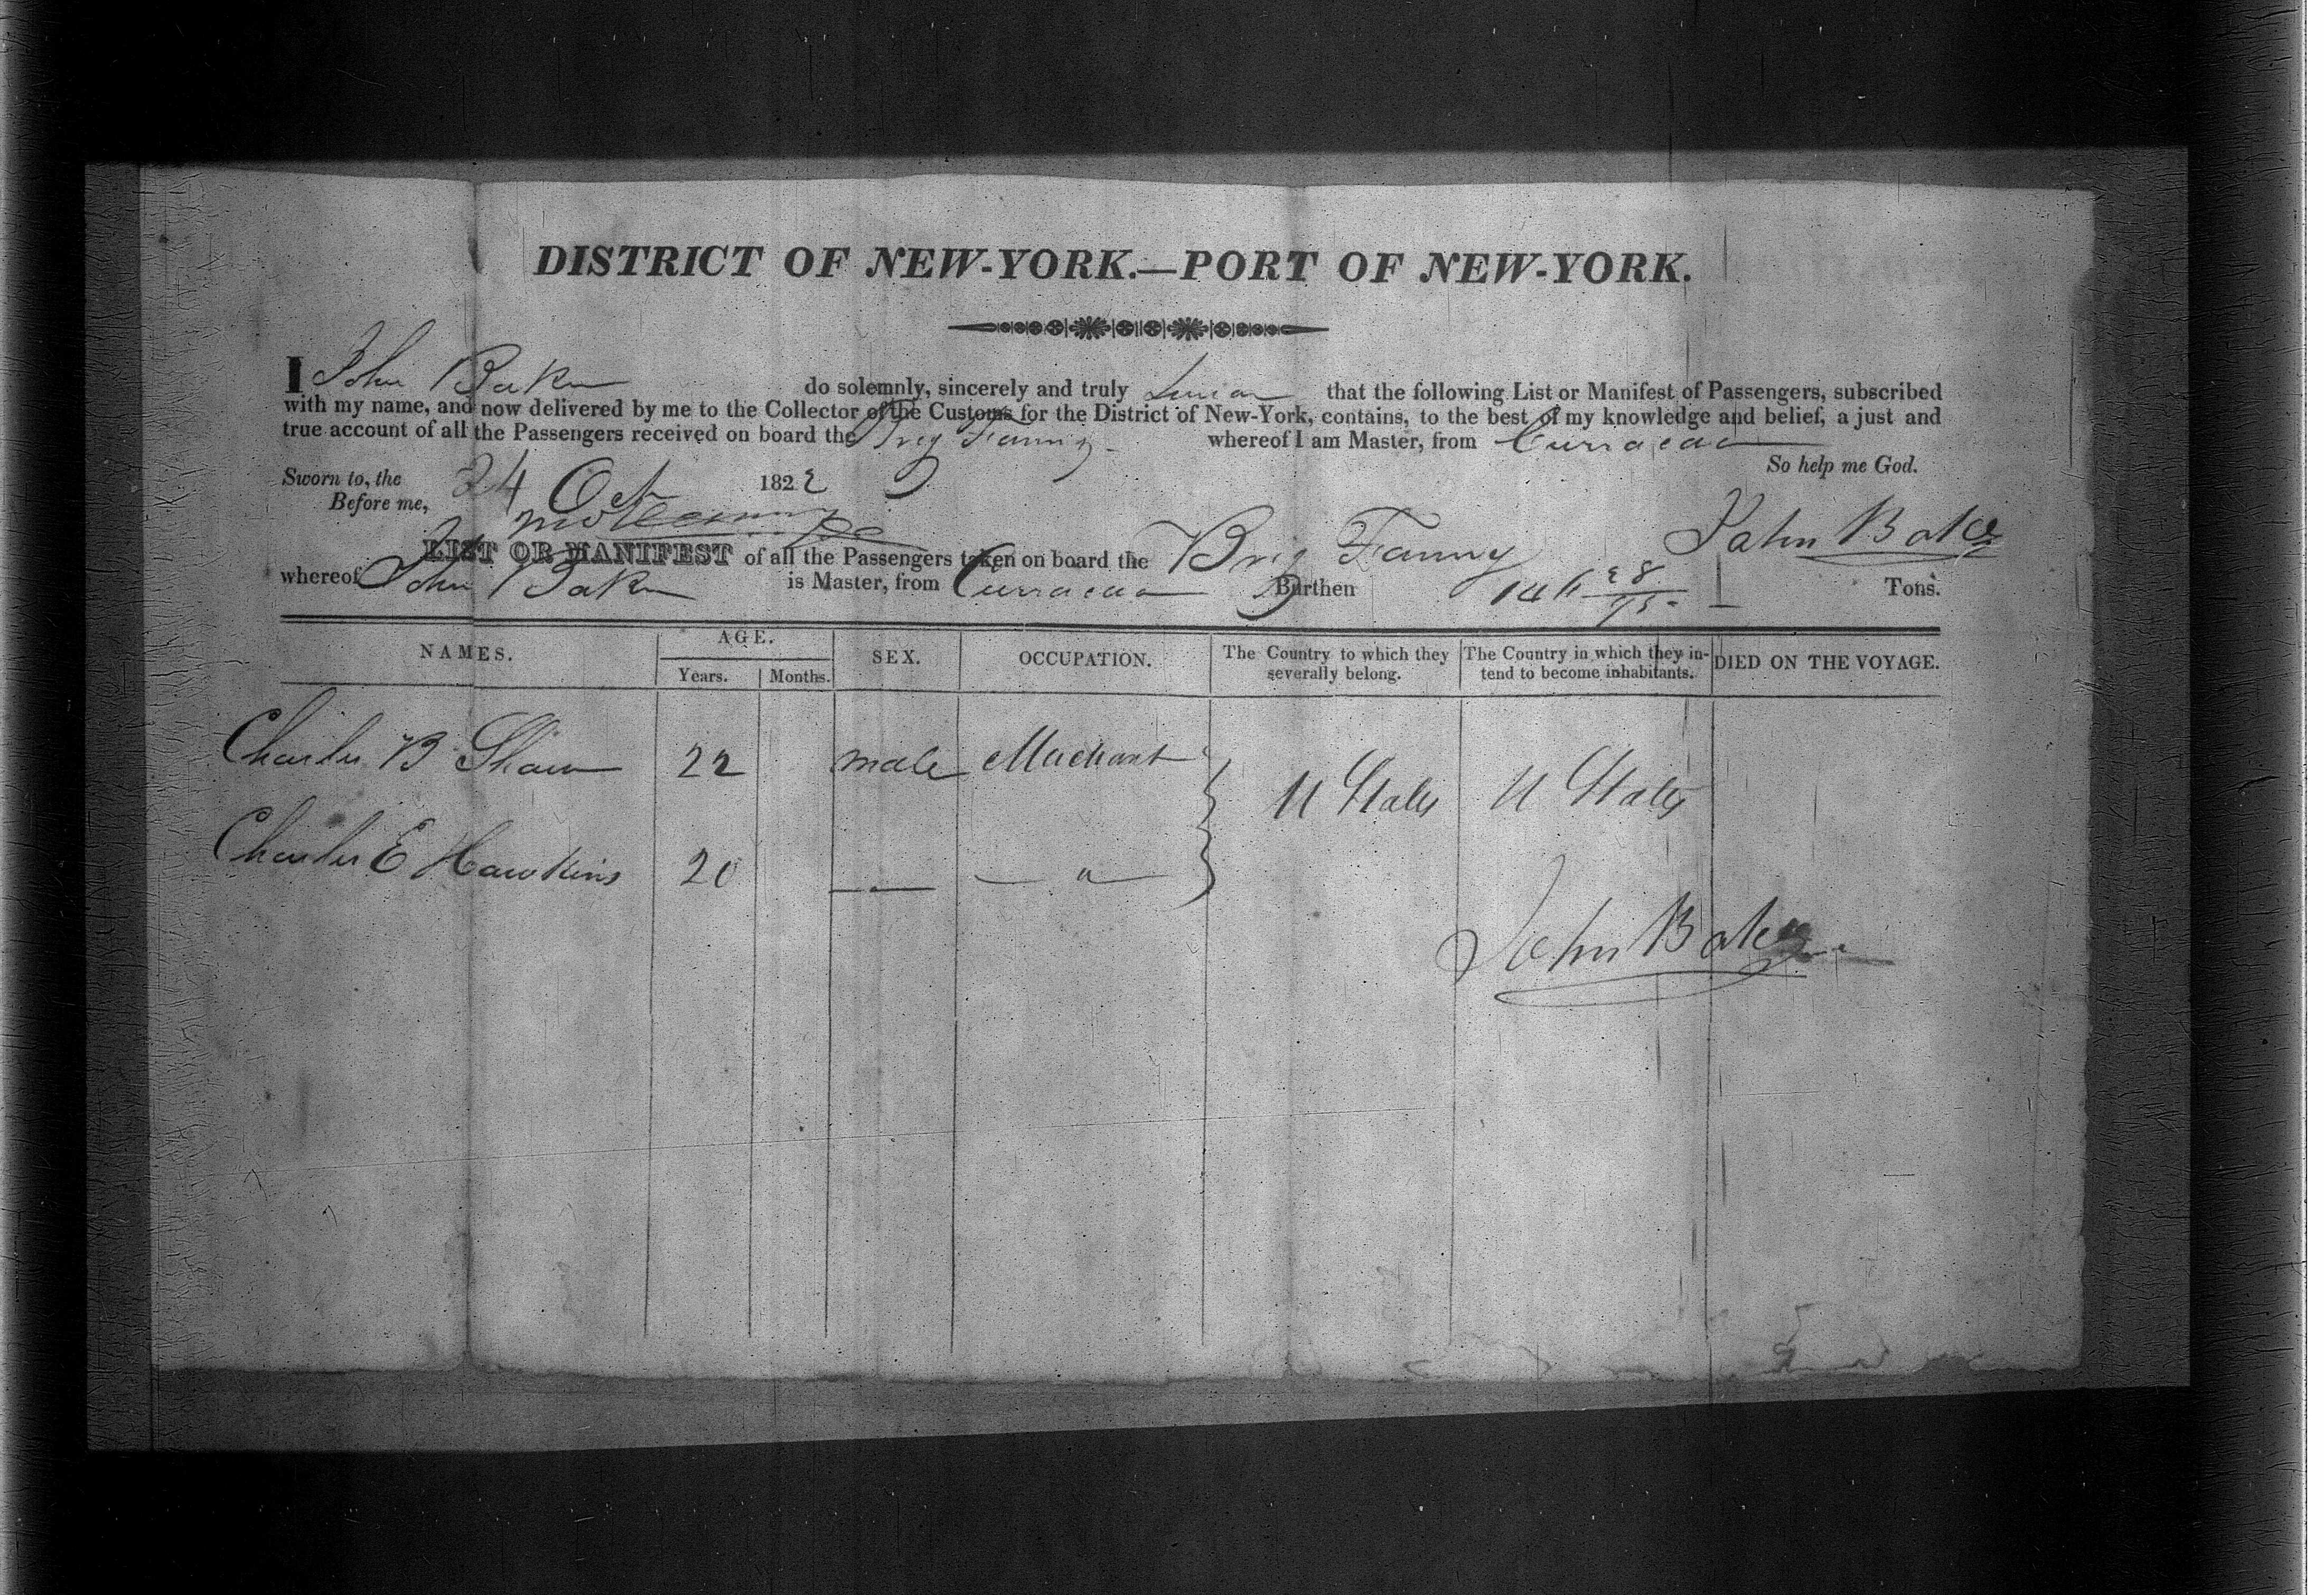 DISTRICT OF NEW-YORK.—PORT OF NEW-YORK.
I John Baker do solemnly, sincerely and truly Swear that the following List or Manifest of Passengers, subscribed
with my name, and now delivered by me to the Collector of the Customs for the District of New-York, contains, to the best of my knowledge and belief, a just and
true account of all the Passengers received on board the Brig Fanny whereof I am Master, from Curracao
So help me God.
Sworn to, the 24 Oct 1822
Before me,
John Baker
LIST OR MANIFEST of all the Passengers taken on board the Brig Fanny
whereof John Baker is Master, from Curracao Burthen 146 28/95 Tons.
NAMES. AGE. SEX. OCCUPATION. The Country to which they severally belong. The Country in which they intend to become inhabitants. DIED ON THE VOYAGE.
Years. Months.
Charles B Shaw 22 male Merchant U States U States
Charles E Hawkins 20 — " —
John Baker